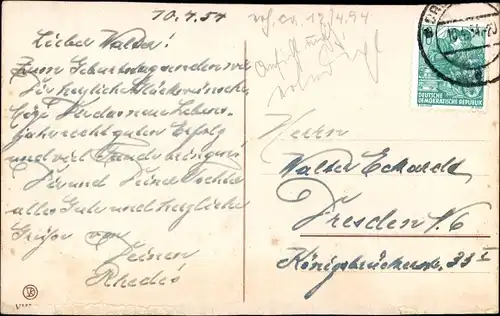 10.4.54
Lieber Walter!
Zum Geburtstag senden wir
Dir herzliche Glückwünsche
Möge Dir das neue Lebens-
jahr recht guten Erfolg
und viel Freude bringen!
Dir und Deine
alles Gute und herzliche
Grüße von
Deinen
Rhedes
DEUTSCHE
DEMOKRATISCHE REPUBLIK
Herrn
Walter Eckardt
Dresden N. 6
Königsbrückerstr. 33 I